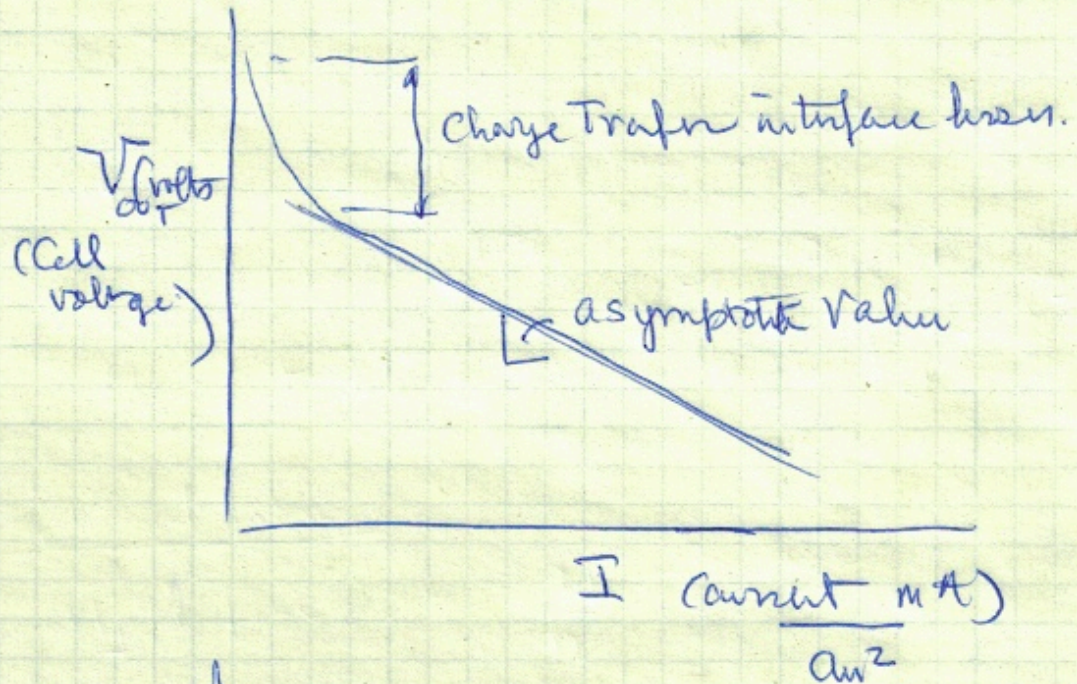 Charge Trafer interface losses.
volts
(Cell
voltage)
asymptotic Value
I (current mA)
cm²